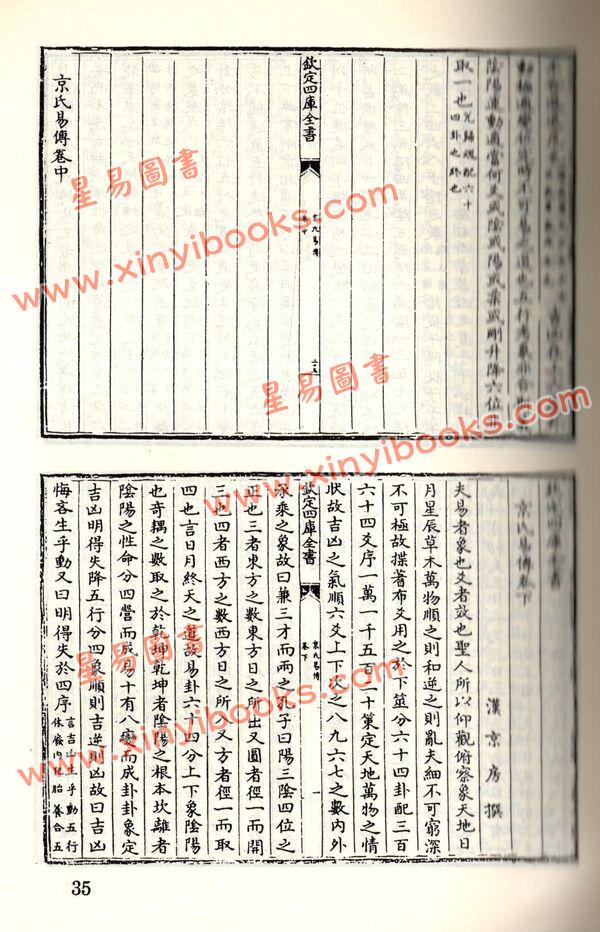 陰陽運動適當何爻或陰或陽或柔或剛升降六位
取一也
六十
四卦之終也
欽定四庫全書
京氏易傳
卷中
京氏易傳卷中
京氏易傳卷下
漢京房撰
夫易者象也爻者效也聖人所以仰觀俯察象天地日
月星辰草木萬物順之則和逆之則亂夫細不可窮深
不可極故揲蓍布爻用之於下筮分六十四卦配三百
六十四爻序一萬一千五百二十策定天地萬物之情
狀故吉凶之氣順六爻上下次之八九六七之數內外
欽定四庫全書
京氏易傳
卷下
一
承乘之象故曰兼三才而兩之孔子曰陽三陰四位之
正也三者東方之數東方日之所出又圓者徑一而開
三也四者西方之數西方日之所入又方者徑一而取
四也言日月終天之道故易卦六十四分上下象陰陽
也奇耦之數取之於乾坤乾坤者陰陽之根本坎離者
陰陽之性命分四營而成易十有八變而成卦卦象定
吉凶明得失降五行分四象順則吉逆則凶故曰吉凶
悔吝生乎動又曰明得失於四序
言吉凶生乎動五行
休廢內化胎養合五
35
星易圖書
www.xinyibooks.com
星易圖書
www.xinyibooks.com
星易圖書
www.xinyibooks.com